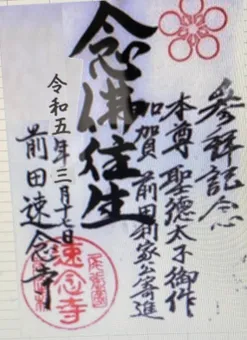 参拝記念
本尊 聖徳太子御作
加賀 前田利家公寄進
念佛往生
令和五年三月
前田速念寺
速念寺